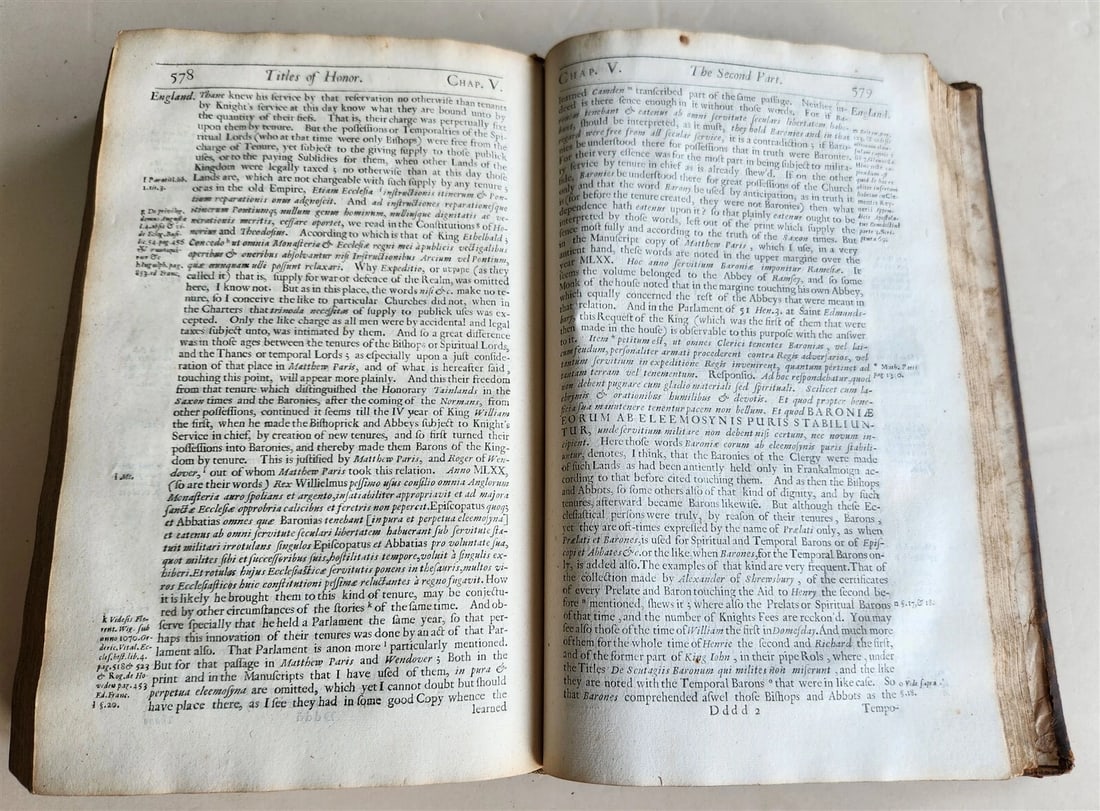 578 Titles of Honor. CHAP. V.
England. Thane knew his service by that reservation no otherwise than tenants
by Knight's service at this day know what they are bound unto by
the quantity of their fiefs. That is, their charge was perpetually fixt
upon them by tenure. But the possessions or Temporalties of the Spi-
ritual Lords (who at that time were only Bishops) were free from the
charge of Tenure, yet subject to the giving supply to those publick
uses, or to the paying Subsidies for them, when other Lands of the
Kingdom were legally taxed; no otherwise than at this day those
Lands are, which are not chargeable with such supply by any tenure;
or as in the old Empire, Etiam Ecclesiæ instructiones itinerum & Pon-
tium reparationis onus adgnoscit. And ad instructiones reparationesque
itinerum Pontiumq; nullum genus hominum, nulliusque dignitatis ac ve-
nerationis meritis, cessare oportet, we read in the Constitutions of Ho-
norius and Theodosius. According to which is that of King Ethelbald;
Concedo ut omnia Monasteria & Ecclesiæ regni mei à publicis vectigalibus
operibus & oneribus absolvantur nisi Instructionibus Arcium vel Pontium,
quæ nunquam ulli possunt relaxari. Why Expeditio, or utware (as they
called it) that is, supply for war or defence of the Realm, was omitted
here, I know not. But as in this place, the words nisi &c. make no te-
nure, so I conceive the like to particular Churches did not, when in
the Charters that trinoda necessitas of supply to publick uses was ex-
cepted. Only the like charge as all men were by accidental and legal
taxes subject unto, was intimated by them. And so a great difference
was in those ages between the tenures of the Bishops or Spiritual Lords,
and the Thanes or temporal Lords; as especially upon a just conside-
ration of that place in Matthew Paris, and of what is hereafter said,
touching this point, will appear more plainly. And this their freedom
from that tenure which distinguished the Honorary Tainlands in the
Saxon times and the Baronies, after the coming of the Normans, from
other possessions, continued it seems till the IV year of King William
the first, when he made the Bishoprick and Abbeys subject to Knight's
Service in chief, by creation of new tenures, and so first turned their
possessions into Baronies, and thereby made them Barons of the King-
dom by tenure. This is justified by Matthew Paris, and Roger of Wen-
dover, out of whom Matthew Paris took this relation. Anno MLXX,
(so are their words) Rex Willielmus pessimo usus consilio omnia Anglorum
Monasteria auro spolians et argento, insatiabiliter appropriavit et ad majora
sanctæ Ecclesiæ opprobria calicibus et feretris non pepercit. Episcopatus quoq;
et Abbatias omnes quæ Baronias tenebant [in pura et perpetua eleemosyna]
et eatenus ab omni servitute seculari libertatem habuerant sub servitute sta-
tuit militari irrotulans singulos Episcopatus et Abbatias pro voluntate sua,
quot milites sibi et successoribus suis, hostilitatis tempore, voluit à singulis ex-
hiberi. Et rotulos hujus Ecclesiasticæ servitutis ponens in thesauris, multos vi-
ros Ecclesiasticos huic constitutioni pessimæ reluctantes à regno fugavit. How
it is likely he brought them to this kind of tenure, may be conjectu-
red by other circumstances of the stories k of the same time. And ob-
serve specially that he held a Parliament the same year, so that per-
haps this innovation of their tenures was done by an act of that Par-
lament also. That Parliament is anon more l particularly mentioned.
But for that passage in Matthew Paris and Wendover; Both in the
print and in the Manuscripts that I have used of them, in pura &
perpetua eleemosyna are omitted, which yet I cannot doubt but should
have place there, as I see they had in some good Copy whence the
learned
i Ms.
k Videsis Flo-
rent. Wig. sub
anno 1070. Or-
deric. Vital. Ec-
cles. hist. lib. 4.
pag. 518 & 523
& Rog. de Ho-
veden pag. 453
Ed. Franc.
l §. 20.
CHAP. V. The Second Part. 579
learned Camden transcribed part of the same passage. Neither in-
deed is there sence enough in it without those words. For if Ba-
ronias tenebant & eatenus ab omni servitute seculari libertatem habu-
erant, should be interpreted, as it must, they held Baronies and in that
regard were free from all secular service, it is a contradiction; if Baro-
nies be understood there for possessions that in truth were Baronies.
For their very essence was for the most part in being subject to milita-
ry service by tenure in chief as is already shew'd. If on the other
side, Baronies be understood there for great possessions of the Church
only and that the word Barony be used by anticipation, as in truth it
is (for before the tenure created, they were not Baronies) then what
dependence hath eatenus upon it? so that plainly eatenus ought to be
interpreted by those words, left out of the print which supply the
sence most fully and according to the truth of the Saxon times. But
in the Manuscript copy of Matthew Paris, which I use, in a very
antient hand, these words are noted in the upper margine over the
year MLXX. Hoc anno servitium Baroniæ imponitur Ramesiæ. It
seems the volume belonged to the Abbey of Ramsey, and so some
Monk of the house noted that in the margine touching his own Abbey,
which equally concerned the rest of the Abbeys that were meant in
that relation. And in the Parliament of 51 Hen. 3. at Saint Edmunds-
bury, this Request of the King (which was the first of them that were
then made in the house) is observable to this purpose with the answer
to it. Item petitum est, ut omnes Clerici tenentes Baronias, vel lai-
cum feudum, personaliter armati procederent contra Regis adversarios, vel
tantum servitium in expeditione Regis invenirent, quantum pertinet ad
tantam terram vel tenementum. Responsio. Ad hoc respondebatur, quod
non debent pugnare cum gladio materiali sed spirituali. Scilicet cum la-
chrymis & orationibus humilibus & devotis. Et quod propter bene-
ficia sua manutenere tenentur pacem non bellum. Et quod BARONIÆ
EORUM AB ELEEMOSYNIS PURIS STABILIUN-
TUR, unde servitium militare non debent nisi certum, nec novum in-
cipient. Here those words Baroniæ eorum ab eleemosynis puris stabili-
untur, denotes, I think, that the Baronies of the Clergy were made
of such Lands as had been antiently held only in Frankalmoign ac-
cording to that before cited touching them. And as then the Bishops
and Abbots, so some others also of that kind of dignity, and by such
tenures, afterward became Barons likewise. But although these Ec-
clesiastical persons were truly, by reason of their tenures, Barons,
yet they are oft-times expressed by the name of Prælati only, as when
Prælati et Barones, is used for Spiritual and Temporal Barons or of Epis-
copi et Abbates &c. or the like, when Barones, for the Temporal Barons on-
ly, is added also. The examples of that kind are very frequent. That of
the collection made by Alexander of Shrewsbury, of the certificates
of every Prelate and Baron touching the Aid to Henry the second be-
fore n mentioned, shews it; where also the Prelats or Spiritual Barons
of that time, and the number of Knights Fees are reckon'd. You may
see also those of the time of William the first in Domesday. And much more
of them for the whole time of Henrie the second and Richard the first,
and of the former part of King Iohn, in their pipe Rols, where, under
the Titles De Scutagiis Baronum qui milites non miserunt, and the like
they are noted with the Temporal Barons o that were in like case. So
that Barones comprehended aswel those Bishops and Abbots as the
Dddd 2 Tempo-
England.
m Matth. Paris
pag. 1330.
n §. 17. & 18.
o Vide supra
§. 18.